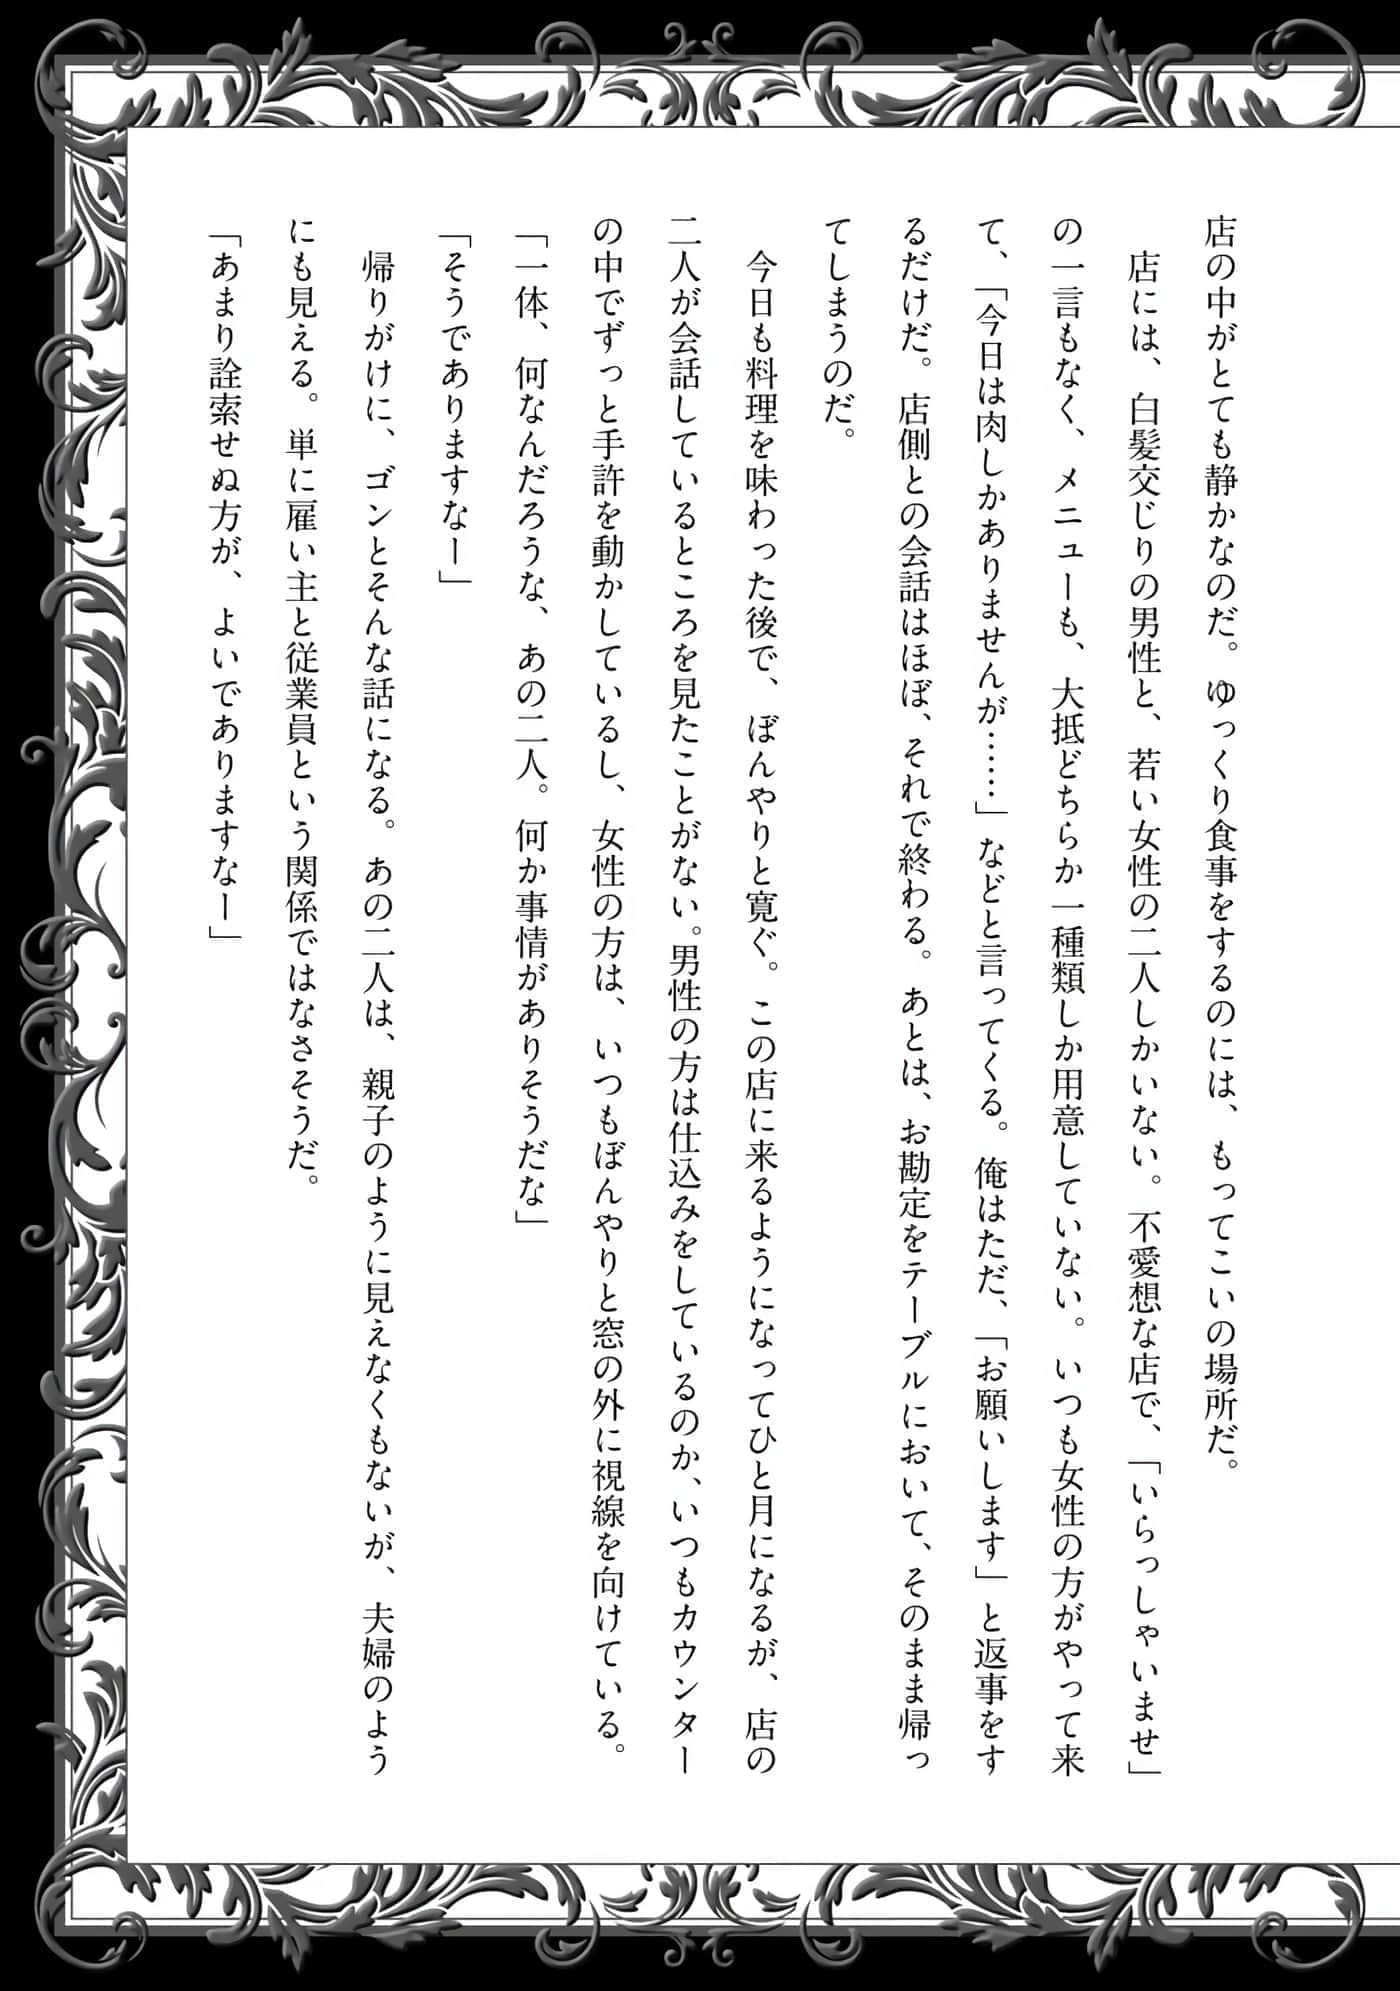 店の中がとても静かなのだ。ゆっくり食事をするのには、もってこいの場所だ。
店には、白髪交じりの男性と、若い女性の二人しかいない。不愛想な店で、「いらっしゃいませ」
の一言もなく、メニューも、大抵どちらか一種類しか用意していない。いつも女性の方がやって来
て、「今日は肉しかありませんが……」などと言ってくる。俺はただ、「お願いします」と返事をす
るだけだ。店側との会話はほぼ、それで終わる。あとは、お勘定をテーブルにおいて、そのまま帰っ
てしまうのだ。
今日も料理を味わった後で、ぼんやりと寛ぐ。この店に来るようになってひと月になるが、店の
二人が会話しているところを見たことがない。男性の方は仕込みをしているのか、いつもカウンター
の中でずっと手許を動かしているし、女性の方は、いつもぼんやりと窓の外に視線を向けている。
「一体、何なんだろうな、あの二人。何か事情がありそうだな」
「そうでありますなー」
帰りがけに、ゴンとそんな話になる。あの二人は、親子のように見えなくもないが、夫婦のよう
にも見える。単に雇い主と従業員という関係ではなさそうだ。
「あまり詮索せぬ方が、よいでありますなー」